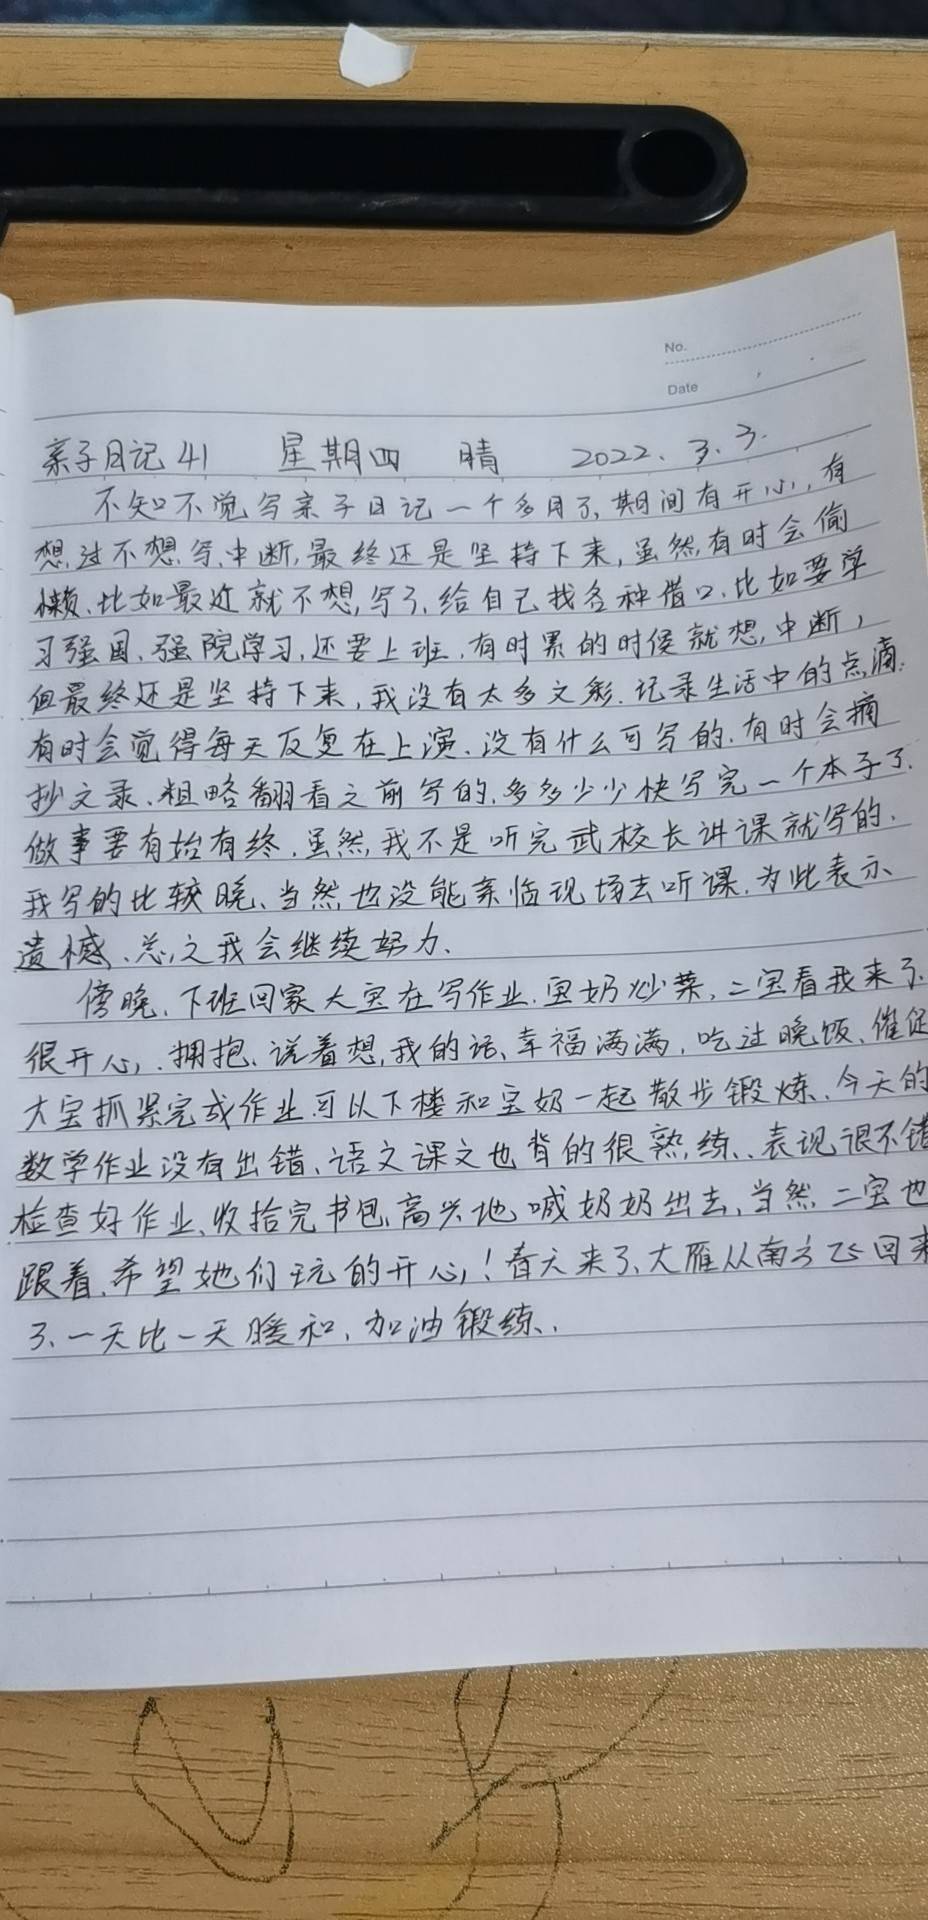 No.
Date
亲子日记 41 星期四 晴 2022.3.3.
不知不觉写亲子日记一个多月了、期间有开心,有
想过不想写、中断,最终还是坚持下来,虽然有时会偷
懒、比如最近就不想写了、给自己找各种借口、比如要学
习强国、强院学习,还要上班、有时累的时候就想中断,
但最终还是坚持下来,我没有太多文彩.记录生活中的点滴.
有时会觉得每天反复在上演、没有什么可写的.有时会摘
抄文录、粗略翻看之前写的,多多少少快写完一个本子了.
做事要有始有终.虽然我不是听完武校长讲课就写的.
我写的比较晚、当然也没能亲临现场去听课.为此表示
遗憾、总之我会继续努力、
傍晚、下班回家大宝在写作业.宝奶炒菜、二宝看我来了
很开心,.拥抱、说着想我的话、幸福满满,吃过晚饭、催促
大宝抓紧完成作业可以下楼和宝奶一起散步锻炼、今天的
数学作业没有出错、语文课文也背的很熟练、表现很不错
检查好作业、收拾完书包,高兴地喊奶奶出去,当然二宝也
跟着、希望她们玩的开心!春天来了、大雁从南方飞回来
了、一天比一天暖和、加油锻练、